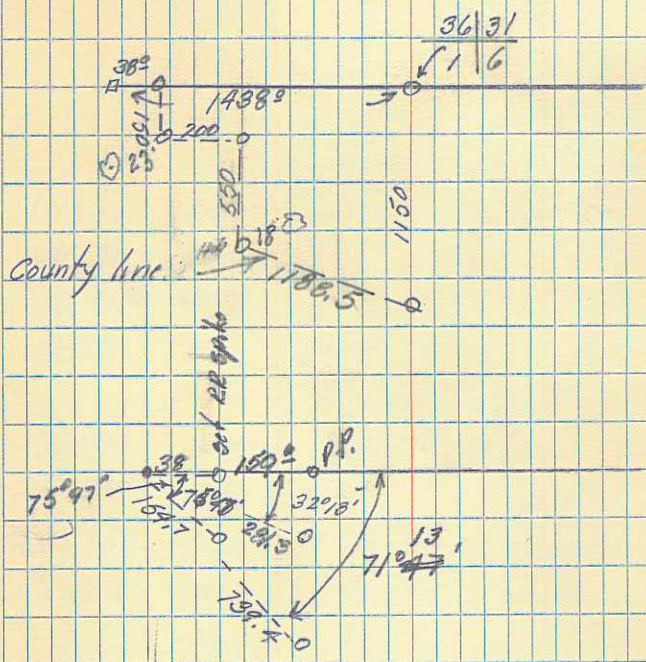 36 | 31
1 | 6
38º
1438º
150
23.0
200
550
1150
18
County line
1188.5
set RR spike
38
150º
P.P.
75°47'
32°18'
159.7
281.3
13
71°47'
739.